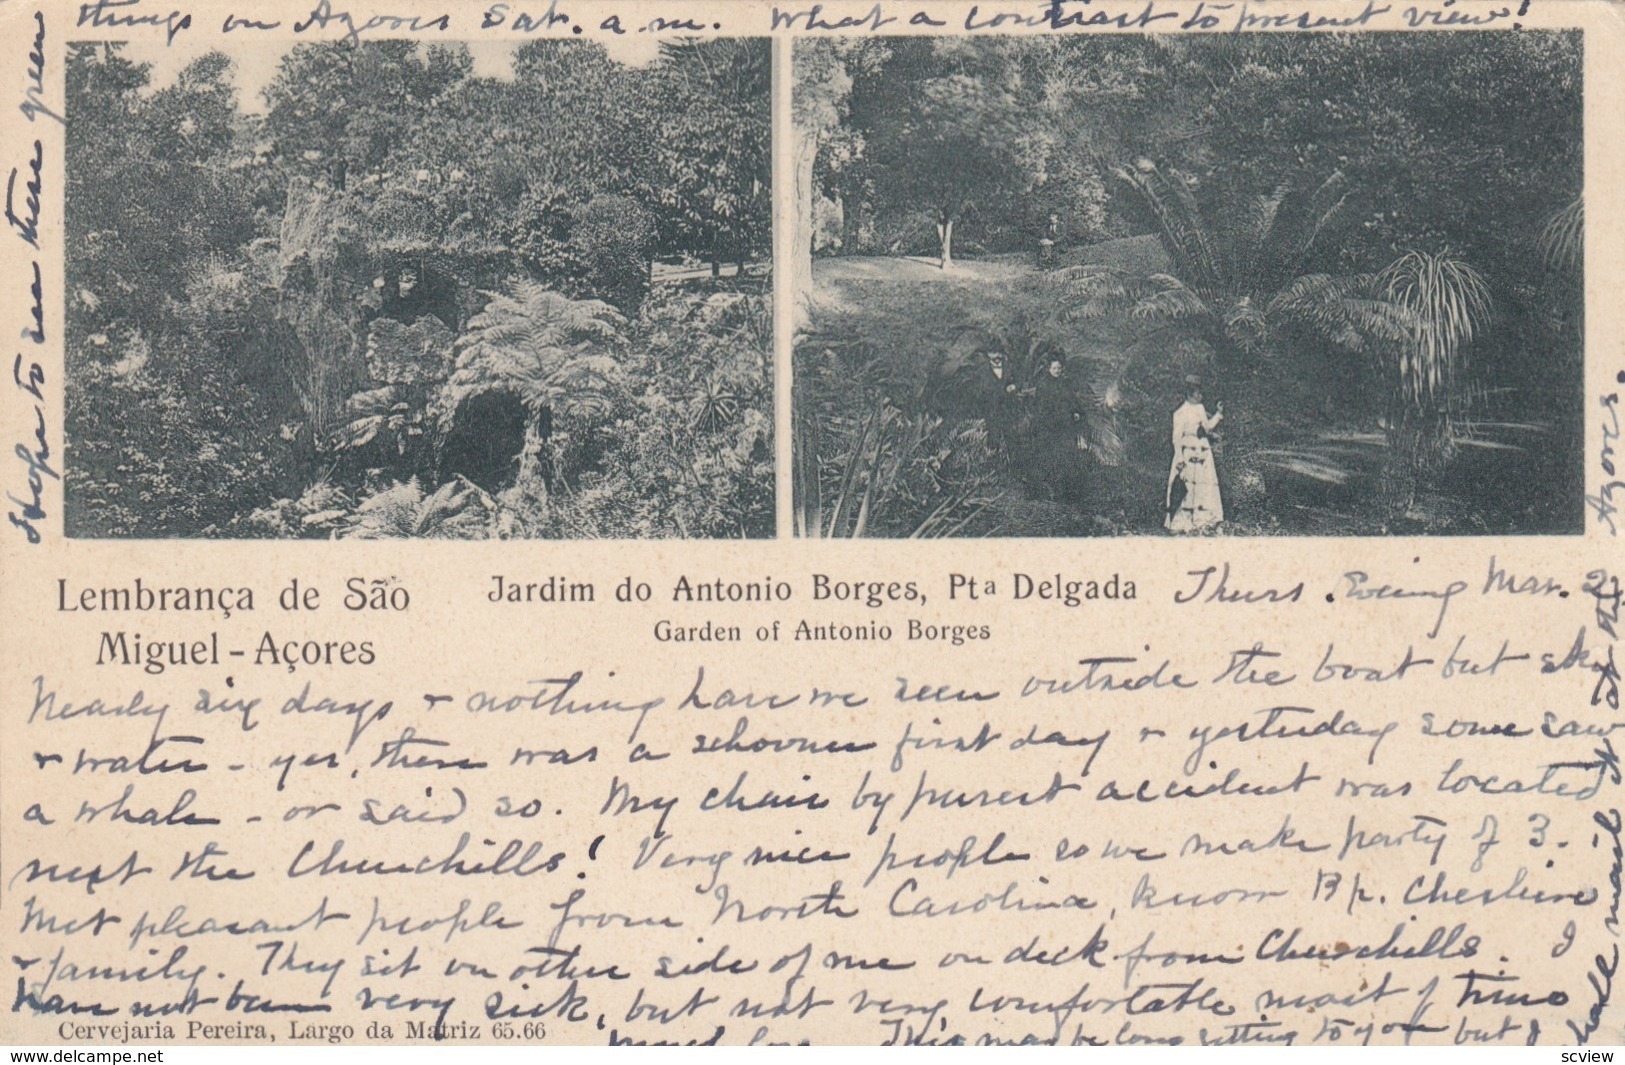 Lembrança de São
Miguel - Açores
Jardim do Antonio Borges, Pta Delgada
Garden of Antonio Borges
Thurs. Evening Mar. 2
Nearly six days & nothing have we seen outside the boat but sky
& water - yes, there was a schooner first day & yesterday some saw
a whale - or said so. My chair by purest accident was located
next the Churchills! Very nice people so we make party of 3.
Met pleasant people from North Carolina, know Bp. Cheshire
& family. They sit on other side of me on deck from Churchills. I
have not been very sick, but not very comfortable most of time
Much love. This may be long getting to you but I
shall mail it at the Azores.
Hope to see these green
things on Azores Sat. a.m. What a contrast to present view!
Cervejaria Pereira, Largo da Matriz 65.66
https://www.delcampe.net
scview